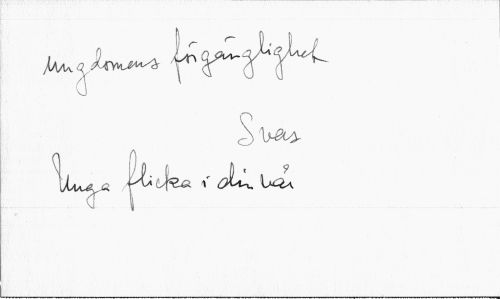 ungdomens förgänglighet
Svas
Unga flicka i din vår